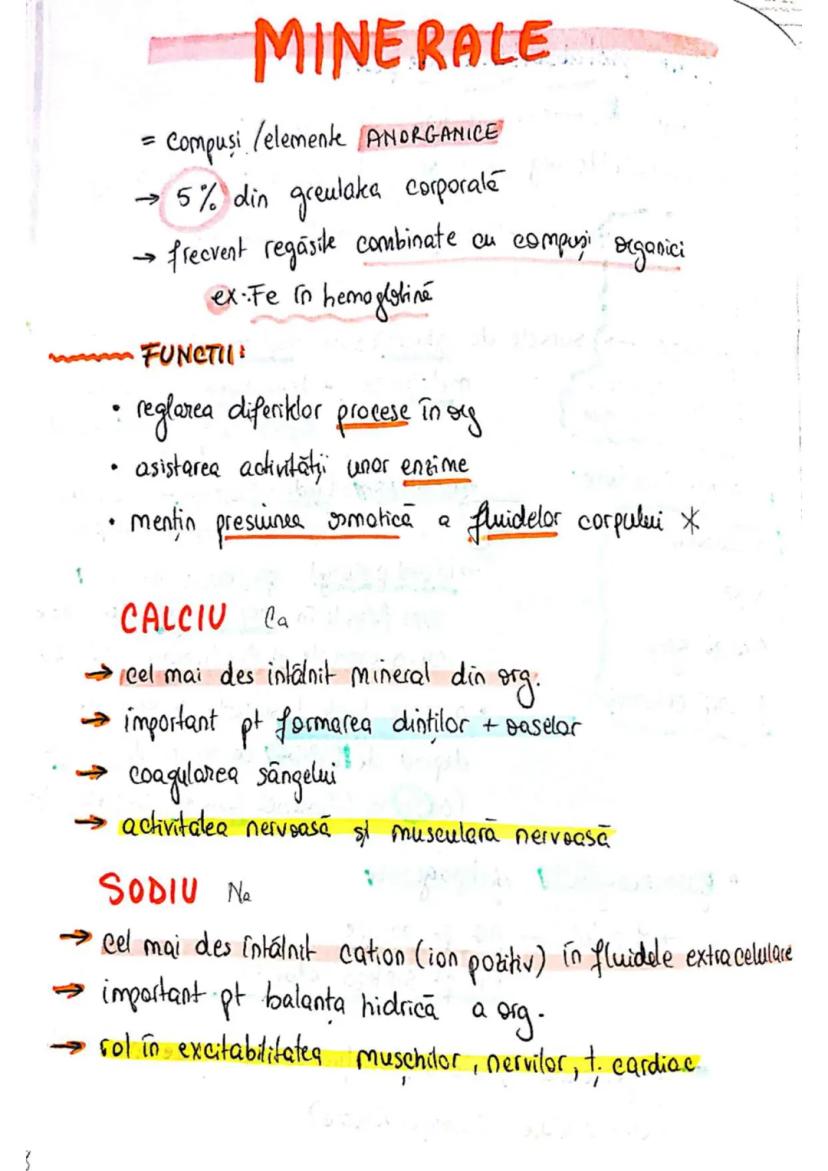 MINERALE
= compuși /elemente ANORGANICE
→ 5% din greutatea corporală
→ frecvent regăsite combinate cu compuși organici
ex: Fe în hemoglobină
FUNCTII:
• reglarea diferitelor procese în org
• asistarea activității unor enzime
• mențin presiunea osmotică a fluidelor corpului *
CALCIU Ca
→ cel mai des întâlnit mineral din org.
→ important pt formarea dinților + oaselor
→ coagularea sângelui
→ activitatea nervoasă și musculară nervoasă
SODIU Na
→ cel mai des întâlnit cation (ion pozitiv) în fluidele extracelulare
→ important pt balanța hidrică a org.
→ rol în excitabilitatea mușchilor, nervilor, ț. cardiac
3